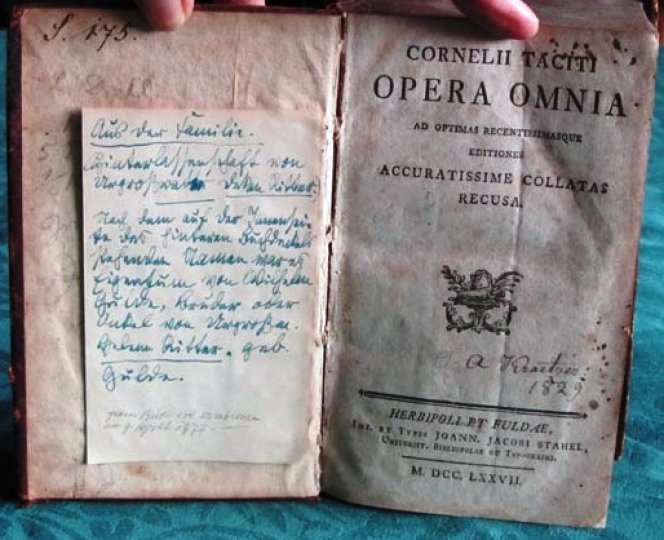 S. 175.
Aus der Familie.
Hinterlassenschaft von
Urgroßvater Dekan Ritter.
Nach dem auf der Innensei-
te des hinteren Buchdeckels
stehenden Namen war es
Eigentum von Wilhelm
Gulde, Bruder oder
Onkel von Urgroßm.
Helene Ritter, geb.
Gulde.
CORNELII TACITI
OPERA OMNIA
AD OPTIMAS RECENTISSIMASQUE
EDITIONES
ACCURATISSIME COLLATAS
RECUSA.
A
1829
HERBIPOLI ET FULDAE,
IMP. ET TYPIS JOANN. JACOBI STAHEL,
UNIVERSIT. BIBLIOPOLAE ET TYPOGRAPHI.
M. DCC. LXXVII.